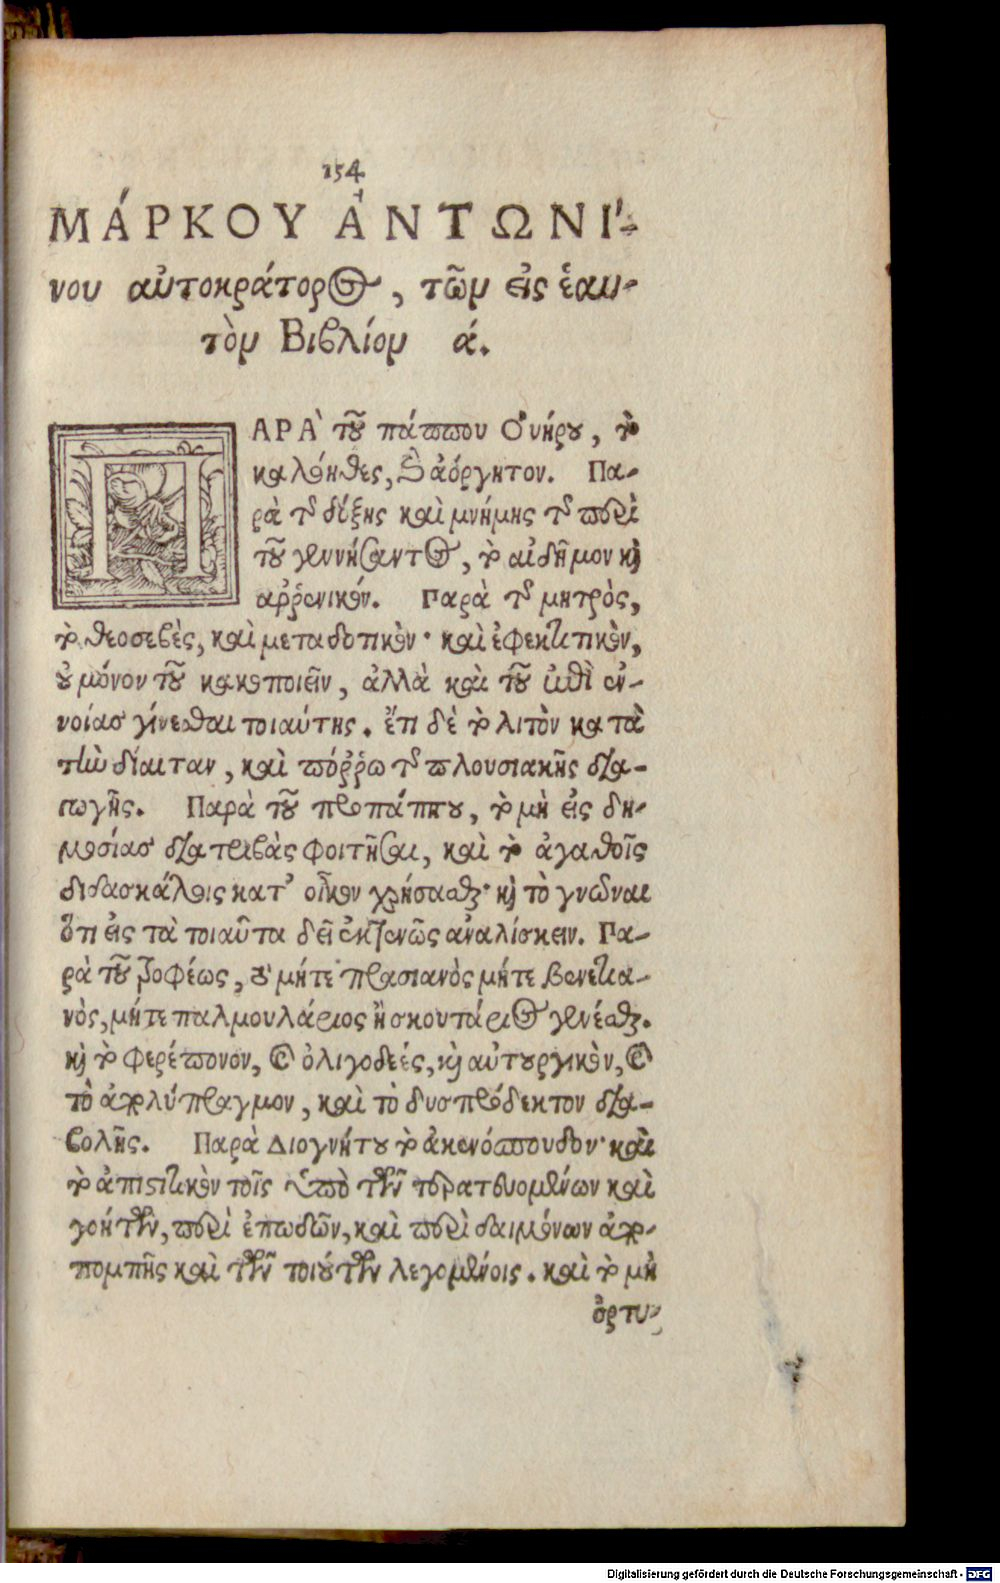 154
ΜΆΡΚΟΥ ἈΝΤΩΝΊ-
νου αὐτοκράτορος, τῶν εἰς ἑαυ-
τὸν Βιβλίον ά.
ΠΑΡᾺ τοῦ πάππου Οὐήρου, τὸ
καλόηθες, καὶ ἀόργητον. Πα-
ρὰ τῆς δόξης καὶ μνήμης τῆς περὶ
τοῦ γεννήσαντος, τὸ αἰδῆμον καὶ
ἀῤῥενικόν. Παρὰ τῆς μητρὸς,
τὸ θεοσεβὲς, καὶ μεταδοτικόν· καὶ ἐφεκτικὸν,
οὐ μόνον τοῦ κακοποιεῖν, ἀλλὰ καὶ τοῦ ἐπὶ ἐν-
νοίας γίνεσθαι τοιαύτης. ἔτι δὲ τὸ λιτὸν κατὰ
τὴν δίαιταν, καὶ πόῤῥω τῆς πλουσιακῆς δια-
γωγῆς. Παρὰ τοῦ προπάππου, τὸ μὴ εἰς δη-
μοσίας διατριβὰς φοιτῆσαι, καὶ τὸ ἀγαθοῖς
διδασκάλοις κατ' οἶκον χρήσασθαι· καὶ τὸ γνῶναι
ὅτι εἰς τὰ τοιαῦτα δεῖ ἐκτενῶς ἀναλίσκειν. Πα-
ρὰ τοῦ τροφέως, οὐ μήτε πρασιανὸς μήτε βενετια-
νὸς, μήτε παλμουλάριος ἢ σκουτάριος γενέσθαι.
καὶ τὸ φερέπονον, καὶ ὀλιγοδεές, καὶ αὐτουργικὸν, καὶ
τὸ ἀπολύπραγμον, καὶ τὸ δυσπρόδεκτον δια-
βολῆς. Παρὰ Διογνήτου τὸ ἀκενόσπουδον· καὶ
τὸ ἀπιστικὸν τοῖς ὑπὸ τῶν τερατευομένων καὶ
γοήτων, περὶ ἐπωδῶν, καὶ περὶ δαιμόνων ἀπο-
πομπῆς καὶ τῶν τοιούτων λεγομένοις. καὶ τὸ μὴ
ὀρτυ-
Digitalisierung gefördert durch die Deutsche Forschungsgemeinschaft - DFG